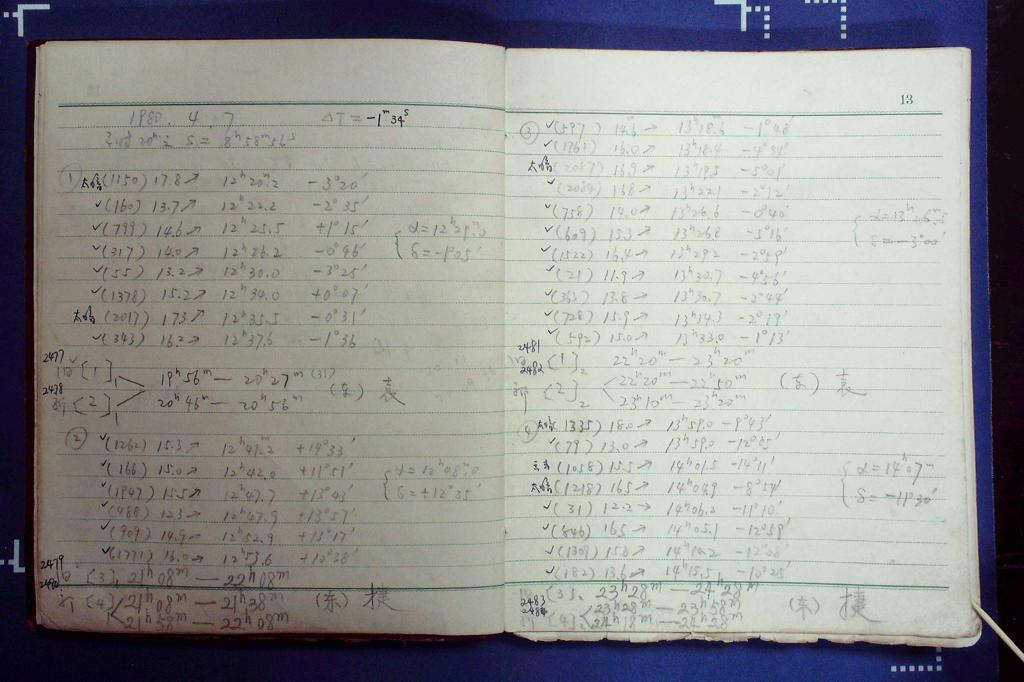 1980. 4. 7 ΔT = -1ᵐ34ˢ
20ʰ S = 8ʰ58ᵐ56ˢ
① 太暗 (1150) 17.8↗ 12ʰ20ᵐ.2 -3°20′
✓(160) 13.7↗ 12ʰ22.2 -2°35′
✓(799) 14.6↗ 12ʰ25.5 +1°15′ { α=12ʰ29ᵐ.0
✓(317) 14.0↗ 12ʰ26.2 -0°46′ δ=-1°05′
✓(55) 13.2↗ 12ʰ30.0 -3°25′
✓(1378) 15.2↗ 12ʰ34.0 +0°07′
太暗 (2017) 17.3↗ 12ʰ35.5 -0°31′
✓(343) 16.2↗ 12ʰ37.6 -1°36
2477 [1]₁ 19ʰ56ᵐ — 20ʰ27ᵐ (31) (东) 袁
2478 [2]₁ 20ʰ46ᵐ — 20ʰ56ᵐ
② ✓(1262) 15.3↗ +14°33′
✓(166) 15.0↗ 12ʰ42.0 +11°51′ { α=12ʰ08ᵐ.0
✓(1947) 15.5↗ 12ʰ47.7 +13°43′ δ=+12°35′
✓(488) 12.3 12ʰ47.9 +13°57′
✓(909) 14.9↗ 12ʰ52.9 +13°17′
✓(1771) 16.0↗ 12ʰ53.6 +10°58′
2479 [3]₁ 21ʰ08ᵐ — 22ʰ08ᵐ
2480 [4] < 21ʰ08ᵐ — 21ʰ38ᵐ (东) 捷
21ʰ58ᵐ — 22ʰ08ᵐ
13
③ ✓(597) 14.6↗ 13ʰ18.6 -1°48′
✓(1761) 16.0↗ 13ʰ18.4 -4°41′
太暗 (2087) 16.9↗ 13ʰ19.5 -5°01′
✓(2084) 13ʰ22.1 -2°12′
✓(758) 14.0↗ 13ʰ26.6 -0°40′ { α=13ʰ26ᵐ.5
✓(609) 15.3↗ 13ʰ26.8 -5°16′ δ=-3°00′
✓(1522) 16.4↗ 13ʰ29.2 -2°59′
✓(21) 11.9↗ 13ʰ30.7 -4°56′
✓(363) 13.8↗ 13ʰ30.7 -2°44′
✓(728) 15.9↗ 13ʰ34.3 -2°19′
✓(592) 15.0↗ 13ʰ33.0 -1°13′
2481 [1]₂ 22ʰ20ᵐ — 23ʰ20ᵐ
2482 [2]₂ < 22ʰ20ᵐ — 22ʰ50ᵐ (东) 袁
23ʰ10ᵐ — 23ʰ20ᵐ
④ 太暗 (1335) 18.0↗ 13ʰ59.0 -9°43′
✓(79) 13.0↗ 13ʰ59.0
(1058) 15.5↗ 14ʰ01.5 -14°11′ { α=14ʰ07ᵐ
太暗 (1218) 16.5↗ 14ʰ04.9 -8°57′ δ=-11°30′
✓(31) 12.2↗ 14ʰ06.2 -11°10′
✓(846) 16.5↗ 14ʰ05.1 -12°59′
✓(1308) 15.8↗ 14ʰ10.2 -12°08′
✓(182) 13.6↗ 14ʰ15.5 -10°25′
[3]₂ 23ʰ28ᵐ — 24ʰ28ᵐ
2483 < 23ʰ28ᵐ — 23ʰ58ᵐ (东) 捷
2484 [4] 24ʰ18ᵐ — 24ʰ28ᵐ